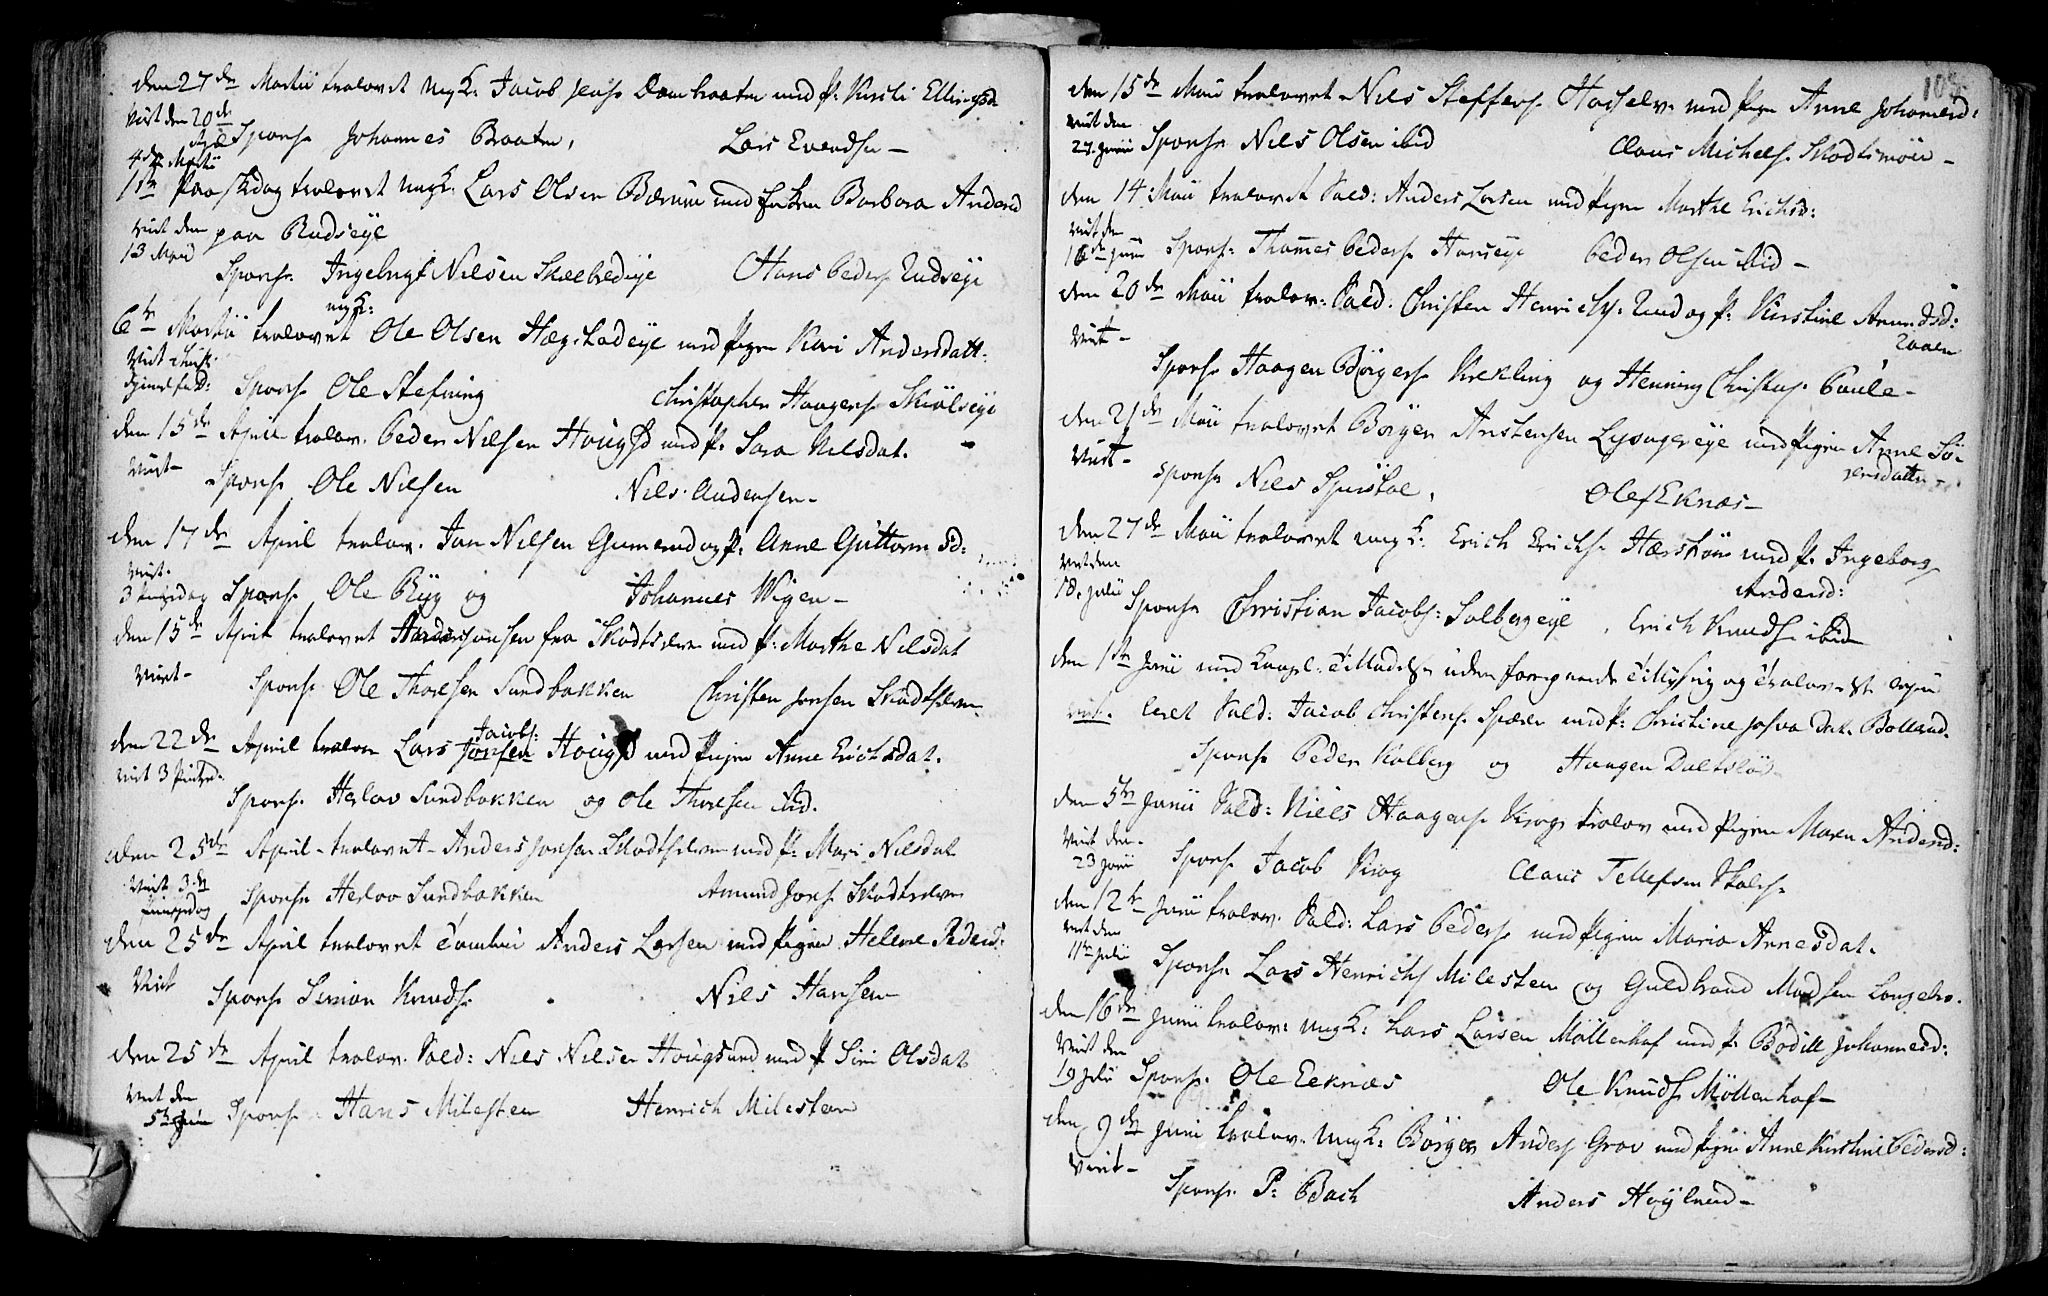 den 27de Martii trolovet ungk: Jacob Jens. Dambraaten med P. Kirsti Ellingsd.
Viet den 20de
Spons. Johannes Braaten, Lars Evendsen -
4de Martii
1ste Paaskedag trolovet ungk: Lars Olsen Bærum med Enken Barbara Andersd
viet den paa Rudseye
13 Maii
Spons. Ingebregt Nilsen Skelbredeye Hans Peders. Rudseye
ungk:
6te Martii trolovet Ole Olsen Hægstadeye med Pigen Kari Andersdatt:
Viet Christi
Himmelf. D: Spons. Ole Stefning Christopher Haagens. Skiølseye
den 15de April trolov. Peder Nilsen Hougsd med P. Sara Nilsdat.
Viet - Spons. Ole Nilsen Nils Andersen -
den 17de April trolov. Jan Nilsen Gumerud og P: Anne Guttorms D:
Viet.
3 Pintzedag Spons. Ole Ryg og Johannes Wigen -
den 15de April trolovet Anders Jonsen fra Skodtselven med P: Marthe Nilsdat
Viet - Spons. Ole Thoresen Sundbakken Christen Jonsen Skodtselven
Jacobs:
den 22de April trolov Lars Jonsen Hougsd med Pigen Anne Erichsdat.
Viet 3 Pintzed. Spons. Herlov Sundbakken og Ole Thoresen ibid.
den 25de April trolovet Anders Jonsen Skodtselven med P: Mari Nilsdat
Viet 3de
Pintzedag Spons. Herlov Sundbakken Amund Jons. Skodtselven
den 25de April trolovet Tambur Anders Larsen med Pigen Helene Pedersd:
Viet Spons. Simon Knuds. Nils Hansen
den 25de April trolov. Sold: Nils Nilsen Hougsund med P Siri Olsdat
Viet den
5te Junii Spons. Hans Milesten Henrich Milesten
105
den 15de Maii trolovet Nils Steffens. Hasselv. med Pigen Anne Johannesd:
Viet den
27. Junii Spons. Nils Olsen ibid Claus Michels. Skodtsmöen -
den 14 Maii trolovet Sold: Anders Larsen med Pigen Marthe Erichsd:
Viet den
16de Junii Spons: Thomes Peders. Horneeye Peder Olsen ibid -
den 20de Maii trolov: Sold: Christen Henrichs. Rud og P. Kirstine Amundsd:
Viet - Zaalen
Spons. Haagen Börgers. Krekling og Henning Christens. Paule -
den 21de Maii trolovet Börger Anstensen Lysagereye med Pigen Anne Sö-
Viet - rensdatter
Spons. Nils Spirstoe. Ole Eknæs -
den 27de Maii trolovet ungk: Erich Erichs. Hærström med P. Ingeborg
Viet den Andersd:
18. Julii Spons. Christian Jacobs: Solbergeye, Erich Knuds. ibid
den 1ste Junii med Kongel. Tilladelse uden foregaaende Tillysning og Trolovelse copu
leret Sold: Jacob Christens. Spæren med P: Christine Josva Dat. Bollerud.
Spons. Peder Kolberg og Haagen Daltslös -
den 5te Junii Sold: Niels Haagens. Krog trolov med Pigen Maren Andersd:
Viet den
23 Junii Spons. Jacob Krog Claus Tellefsen Skals.
den 12te Junii trolov. Sold: Lars Peders. med Pigen Maria Arnesdat.
Viet den
11te Julii Spons. Lars Henrichs Milesten og Guldbrand Madsen Langebr.
den 16de Junii trolov: ungk: Lars Larsen Möllenhof med P. Bodill Johannesd:
Viet den
19 Julii Spons. Ole Eeknæs Ole Knuds Möllenhof -
den 9de Junii trolov. ungk: Börger Anders. Grav med Pigen Anne Kirstine Pedersd:
Viet - Spons. P: Bach Anders Höylund -